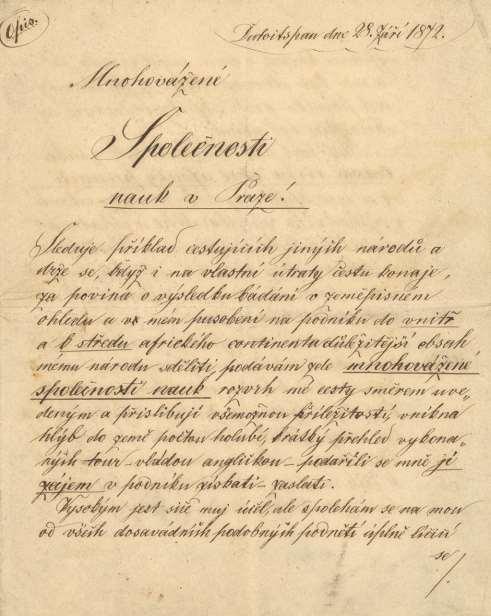 Opis.
Dutoitspan dne 28. Září 1872.
Mnohovážené
Společnosti
nauk v Praze!
Sleduje příklad cestujících jiných národů a
drže se, když i na vlastní útraty cestu konaje,
za povina o výsledku bádání v zeměpisném
ohledu a ve mém pusobení na podniku do vnitř
a k středu afrického continentu důležitější obsah
mému národu sděliti podávám zde mnohovážené
společnosti nauk rozvrh mé cesty směrem uve-
deným a přislibuji všemožnou příležitostí, vnikna
hlyb do země počtou holubí, krátký přehled vykona-
ných tour vládou anglickou podařili se mně jí
zajem v podniku získati zaslati.
Vysokým jest sic muj účel, ale spolehám se na mou
od všech dosavádních podobných podnětí úplně lišící
se